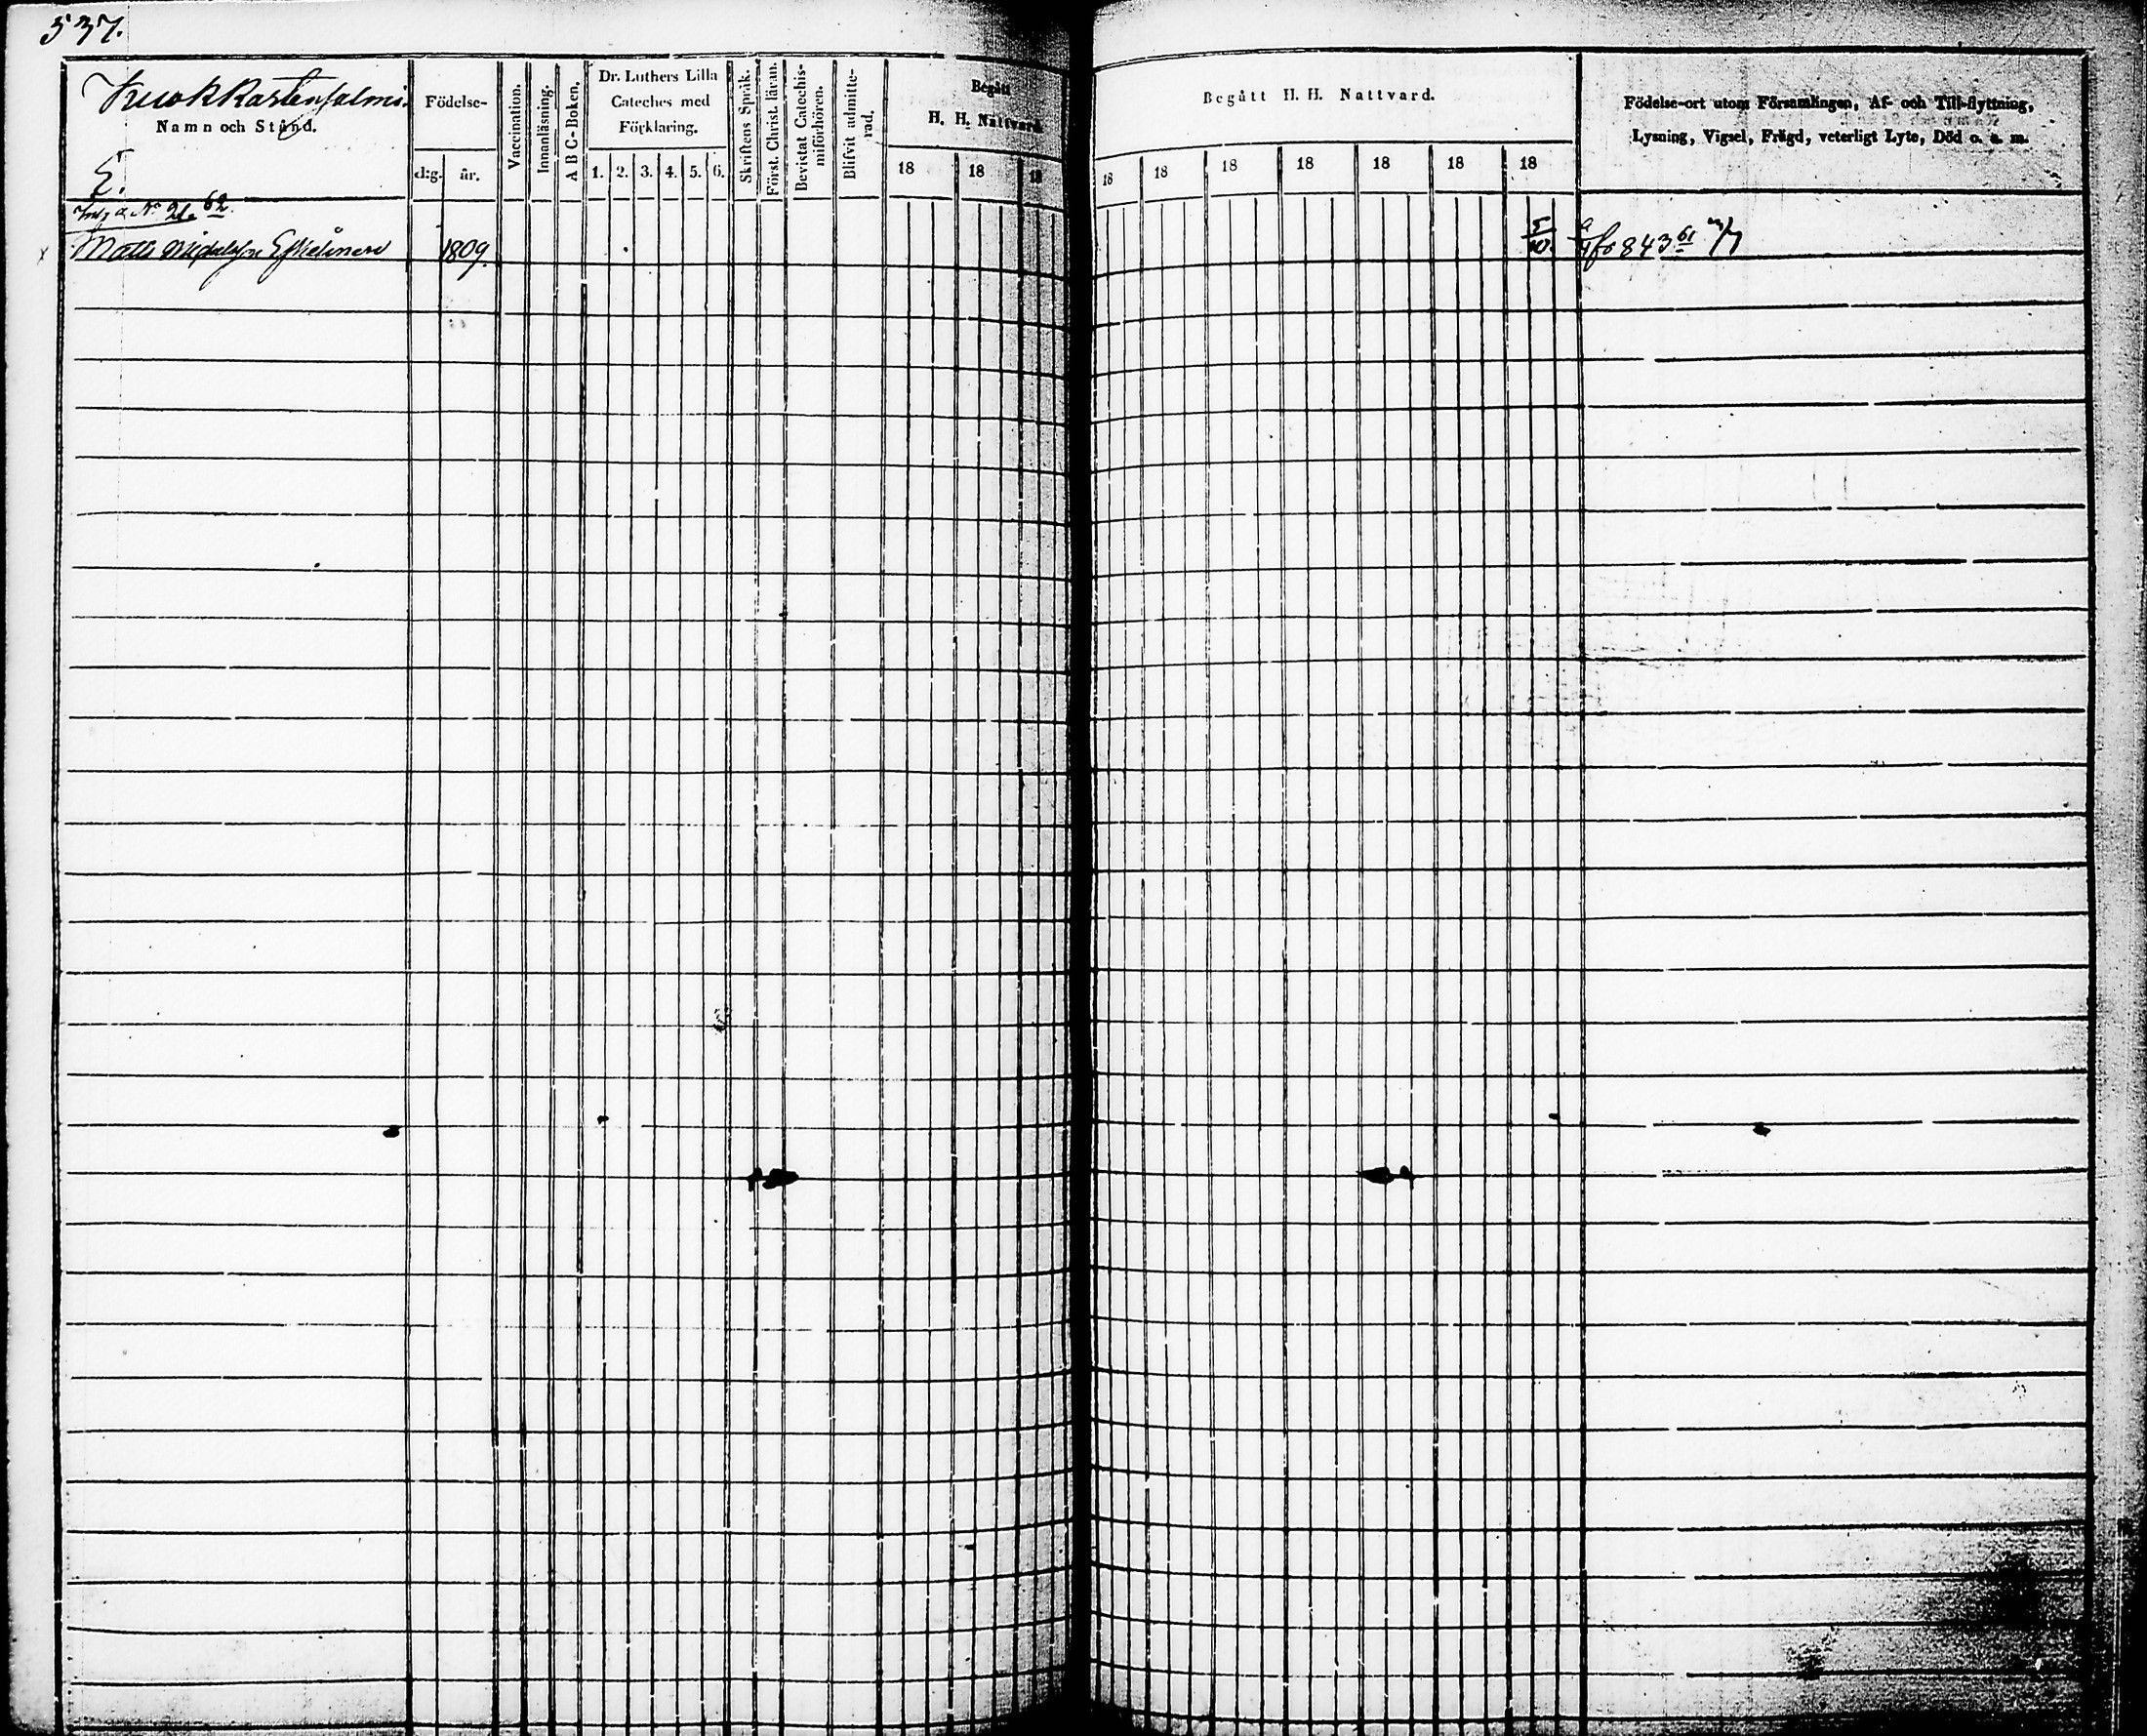 537.
Namn och Stånd.
Födelse-
d:g. år.
Vaccination.
Innanläsning.
A B C-Boken.
Dr. Luthers Lilla
Cateches med
Förklaring.
1. 2. 3. 4. 5. 6.
Skriftens Språk.
Först. Christ. läran.
Bevistat Catechis-
miförhören.
Blifvit admitte-
rad.
Begått
H. H. Nattvard
18 18 18
Begått H. H. Nattvard.
18 18 18 18 18 18 18
Födelse-ort utom Församlingen, Af- och Till-flyttning,
Lysning, Vigsel, Frägd, veterligt Lyte, Död o. s. m.
Matts 1809. 5/10. 843 61